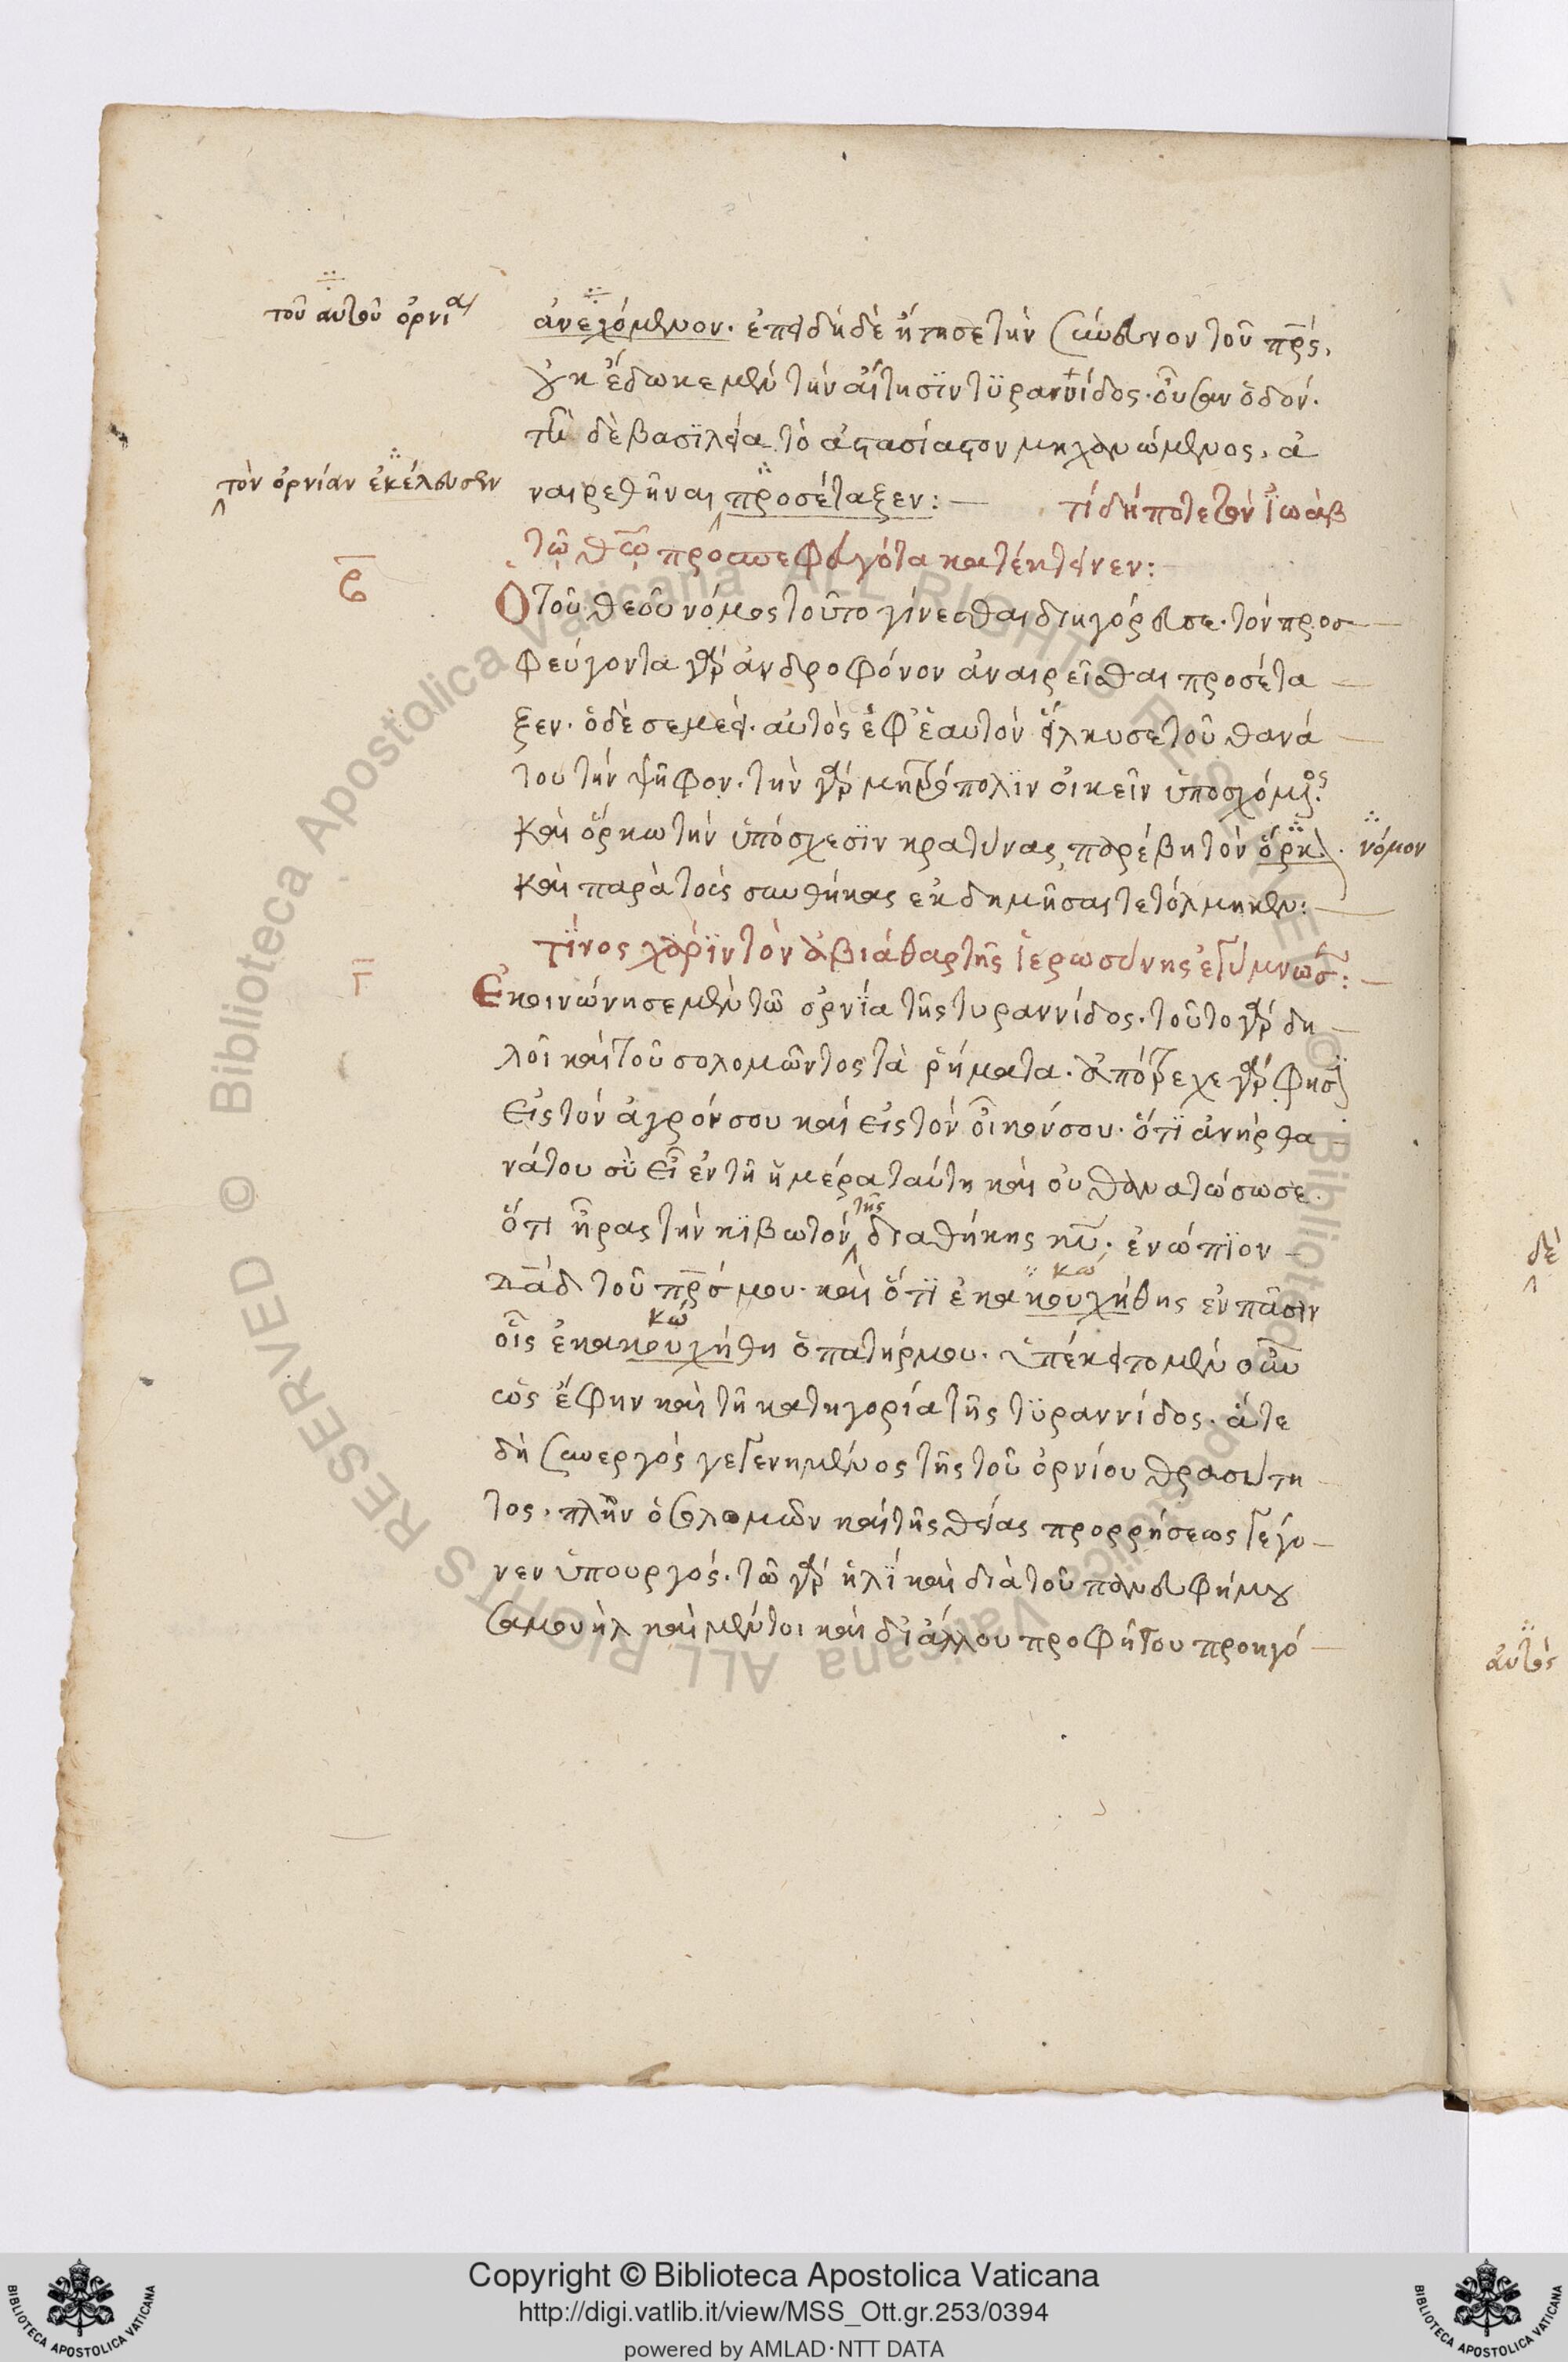 τοῦ αὐτοῦ ὀρνία
ἀνεχόμενον. ἐπειδὴ δὲ ᾔτησε τὴν σύνευνον τοῦ πρς,
οὐκ ἔδωκε μὲν τὴν αἴτησϊν τϋραννίδος. οὖσαν ὁδόν.
τῆ δὲ βασϊλεία τὸ ἀστασίαστον μηχανώμενος, ἀ
τὸν ὀρνίαν ἐκέλευσεν
ναιρεθῆναι προσέταξεν: τί δήποτε τὸν ἰωὰβ
τῶ θῶ προσπεφευγότα κατέκτεινεν:
β
Ὁ τοῦ θεοῦ νόμος τοῦτο γίνεσθαι διηγόρευσε. τὸν προσ
φεύγοντα γὰρ ἀνδροφόνον ἀναιρεῖσθαι προσέτα
ξεν. ὁ δὲ σεμεεί. αὐτὸς ἐφ' ἑαυτὸν εἵλκυσε τοῦ θανά
του τὴν ψῆφον. τὴν γὰρ μητρόπολϊν οἰκεῖν ὑποσχόμενος.
καὶ ὅρκω τὴν ὑπόσχεσϊν κρατύνας, παρέβη τὸν ὅρκον. νόμον
καὶ παρὰ τὰς συνθήκας ἐκδημῆσαι τετόλμηκεν:
τϊνος χάρϊν τὸν ἀβιάθαρ τῆς ἱερωσύνης ἐγύμνωσε:
γ
Ἐκοινώνησε μὲν τῶ ὀρνϊα τῆς τυραννίδος. τοῦτο γὰρ δη
λοῖ καὶ τοῦ σολομῶντος τὰ ῥήματα. ἀπότρεχε γὰρ φησὶ
εἰς τὸν ἀγρόν σου καὶ εἰς τὸν οἶκον σου. ὅτϊ ἀνὴρ θα
νάτου σὺ εἶ ἐν τῆ ἡμέρα ταύτη καὶ οὐ θανατώσω σε.
ὅτι ἦρας τὴν κϊβωτὸν τῆς διαθήκης κυ. ἐνώπϊον
δαδ τοῦ πρσ μου. καὶ ὅτϊ ἐκακουχήθης ἐν πᾶσιν
κώ
οἷς ἐκακουχήθη ὁ πατήρ μου. ὑπέκειτο μὲν οὖν
κώ
ὡς ἔφην καὶ τῆ κατηγορία τῆς τϋραννίδος. ἅτε
δὴ συνεργὸς γεγενημένος τῆς τοῦ ὀρνίου θρασύτη
τος. πλὴν ὁ σολομῶν καὶ τῆς θείας προρρήσεως γέγο
νεν ὑπουργός. τῶ γὰρ ἡλὶ καὶ διὰ τοῦ πανευφήμου
σαμουὴλ καὶ μέντοι καὶ δι' ἄλλου προφήτου προηγό
δὲ
αὐτὸς
© Biblioteca Apostolica Vaticana ALL RIGHTS RESERVED
Copyright © Biblioteca Apostolica Vaticana
http://digi.vatlib.it/view/MSS_Ott.gr.253/0394
powered by AMLAD·NTT DATA
BIBLIOTECA APOSTOLICA VATICANA
BIBLIOTECA APOSTOLICA VATICANA